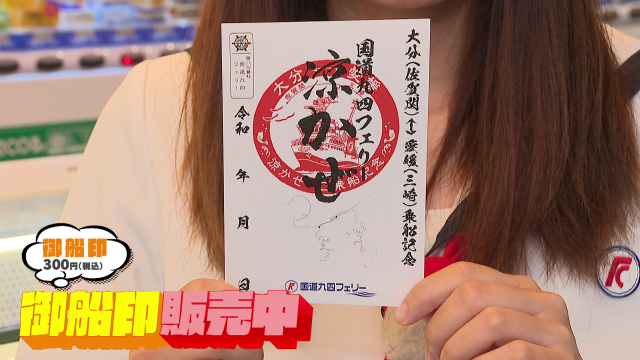 大分(佐賀関)↔愛媛(三崎)乗船記念
国道九四フェリー
涼かぜ
大分
佐賀関
涼かせ
乗船記念
国道九四
フェリー
令和 年 月 日
国道九四フェリー
御船印
300円(税込)
御船印販売中